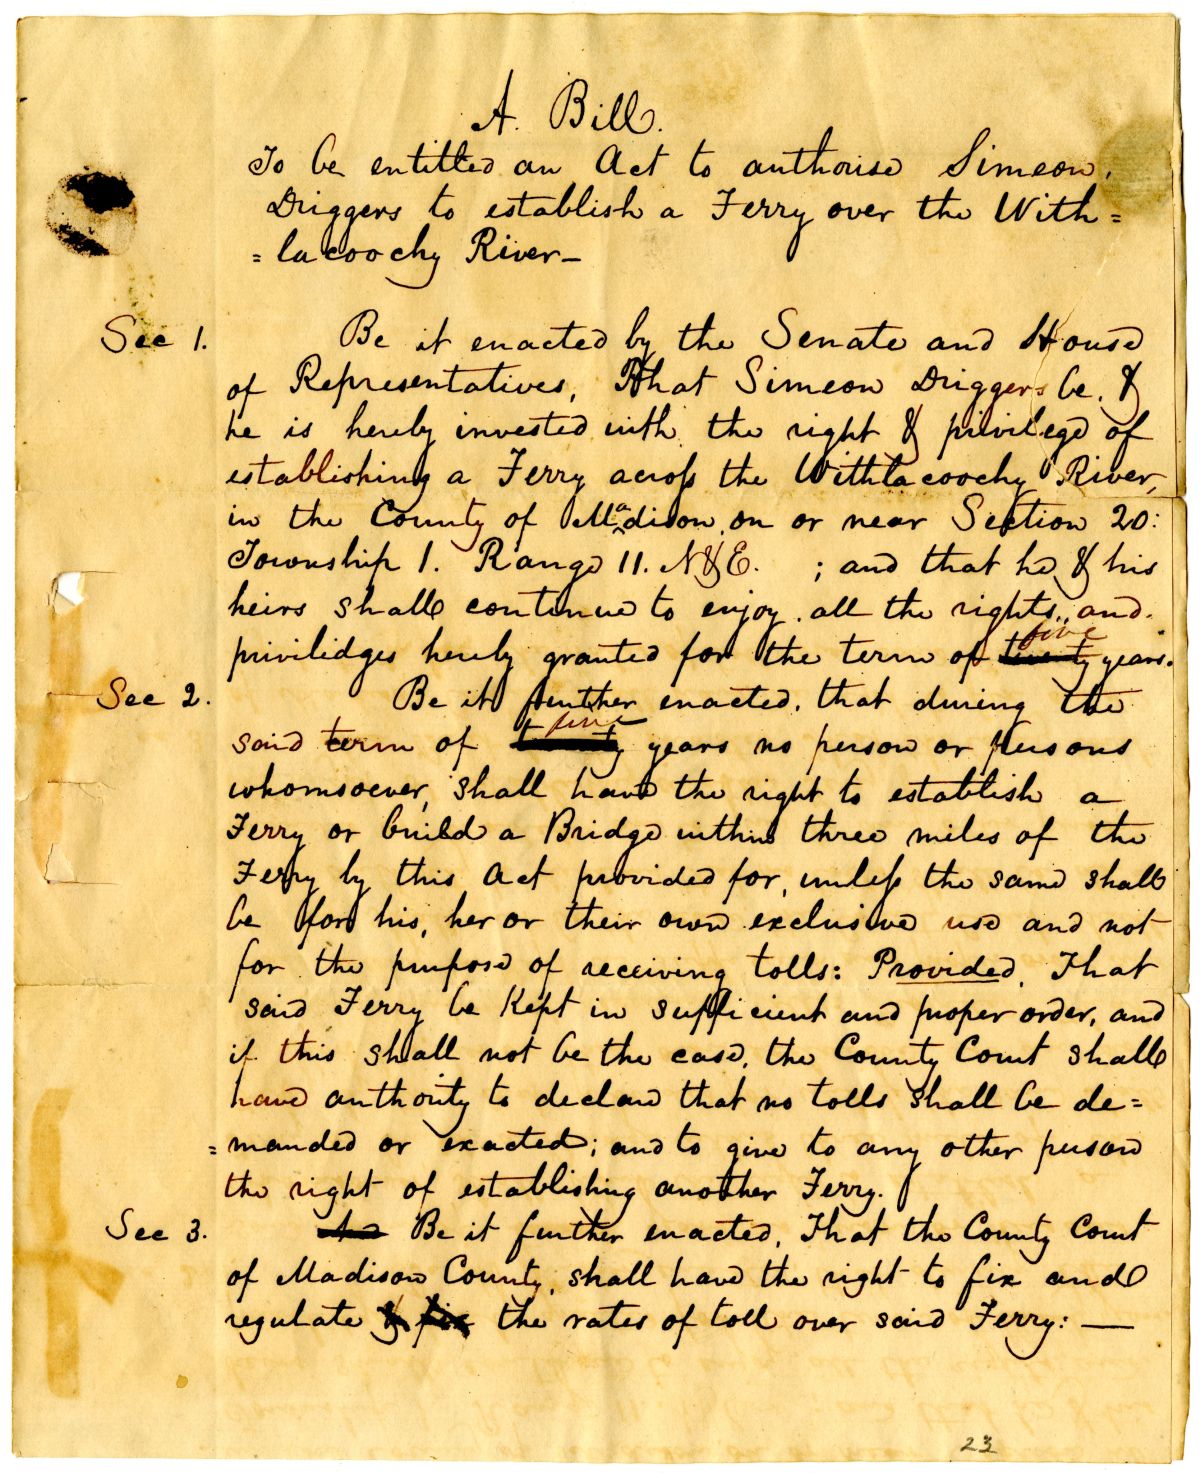 A. Bill.
To be entitled an Act to authorise Simeon
Driggers to establish a Ferry over the With=
=lacoochy River—
Sec 1. Be it enacted by the Senate and House
of Representatives, That Simeon Driggers be, &
he is hereby invested with the right & privilege of
establishing a Ferry across the Withlacoochy River,
in the County of Madison, on or near Section 20:
Township 1. Range 11. N&E. ; and that he & his
heirs shall continue to enjoy all the rights, and
five
priviledges hereby granted for the term of twenty years.
Sec 2. Be it further enacted, that during the
five
said term of twenty years no person or persons
whomsoever, shall have the right to establish a
Ferry or build a Bridge within three miles of the
Ferry by this Act provided for, unless the same shall
be for his, her or their own exclusive use and not
for the purpose of receiving tolls: Provided, That
said Ferry be Kept in sufficient and proper order, and
if this shall not be the case, the County Court shall
have authority to declare that no tolls shall be de=
=manded or exacted; and to give to any other person
the right of establishing another Ferry.
Sec 3. And Be it further enacted, That the County Court
of Madison County, shall have the right to fix and
regulate & fix the rates of toll over said Ferry: —
23